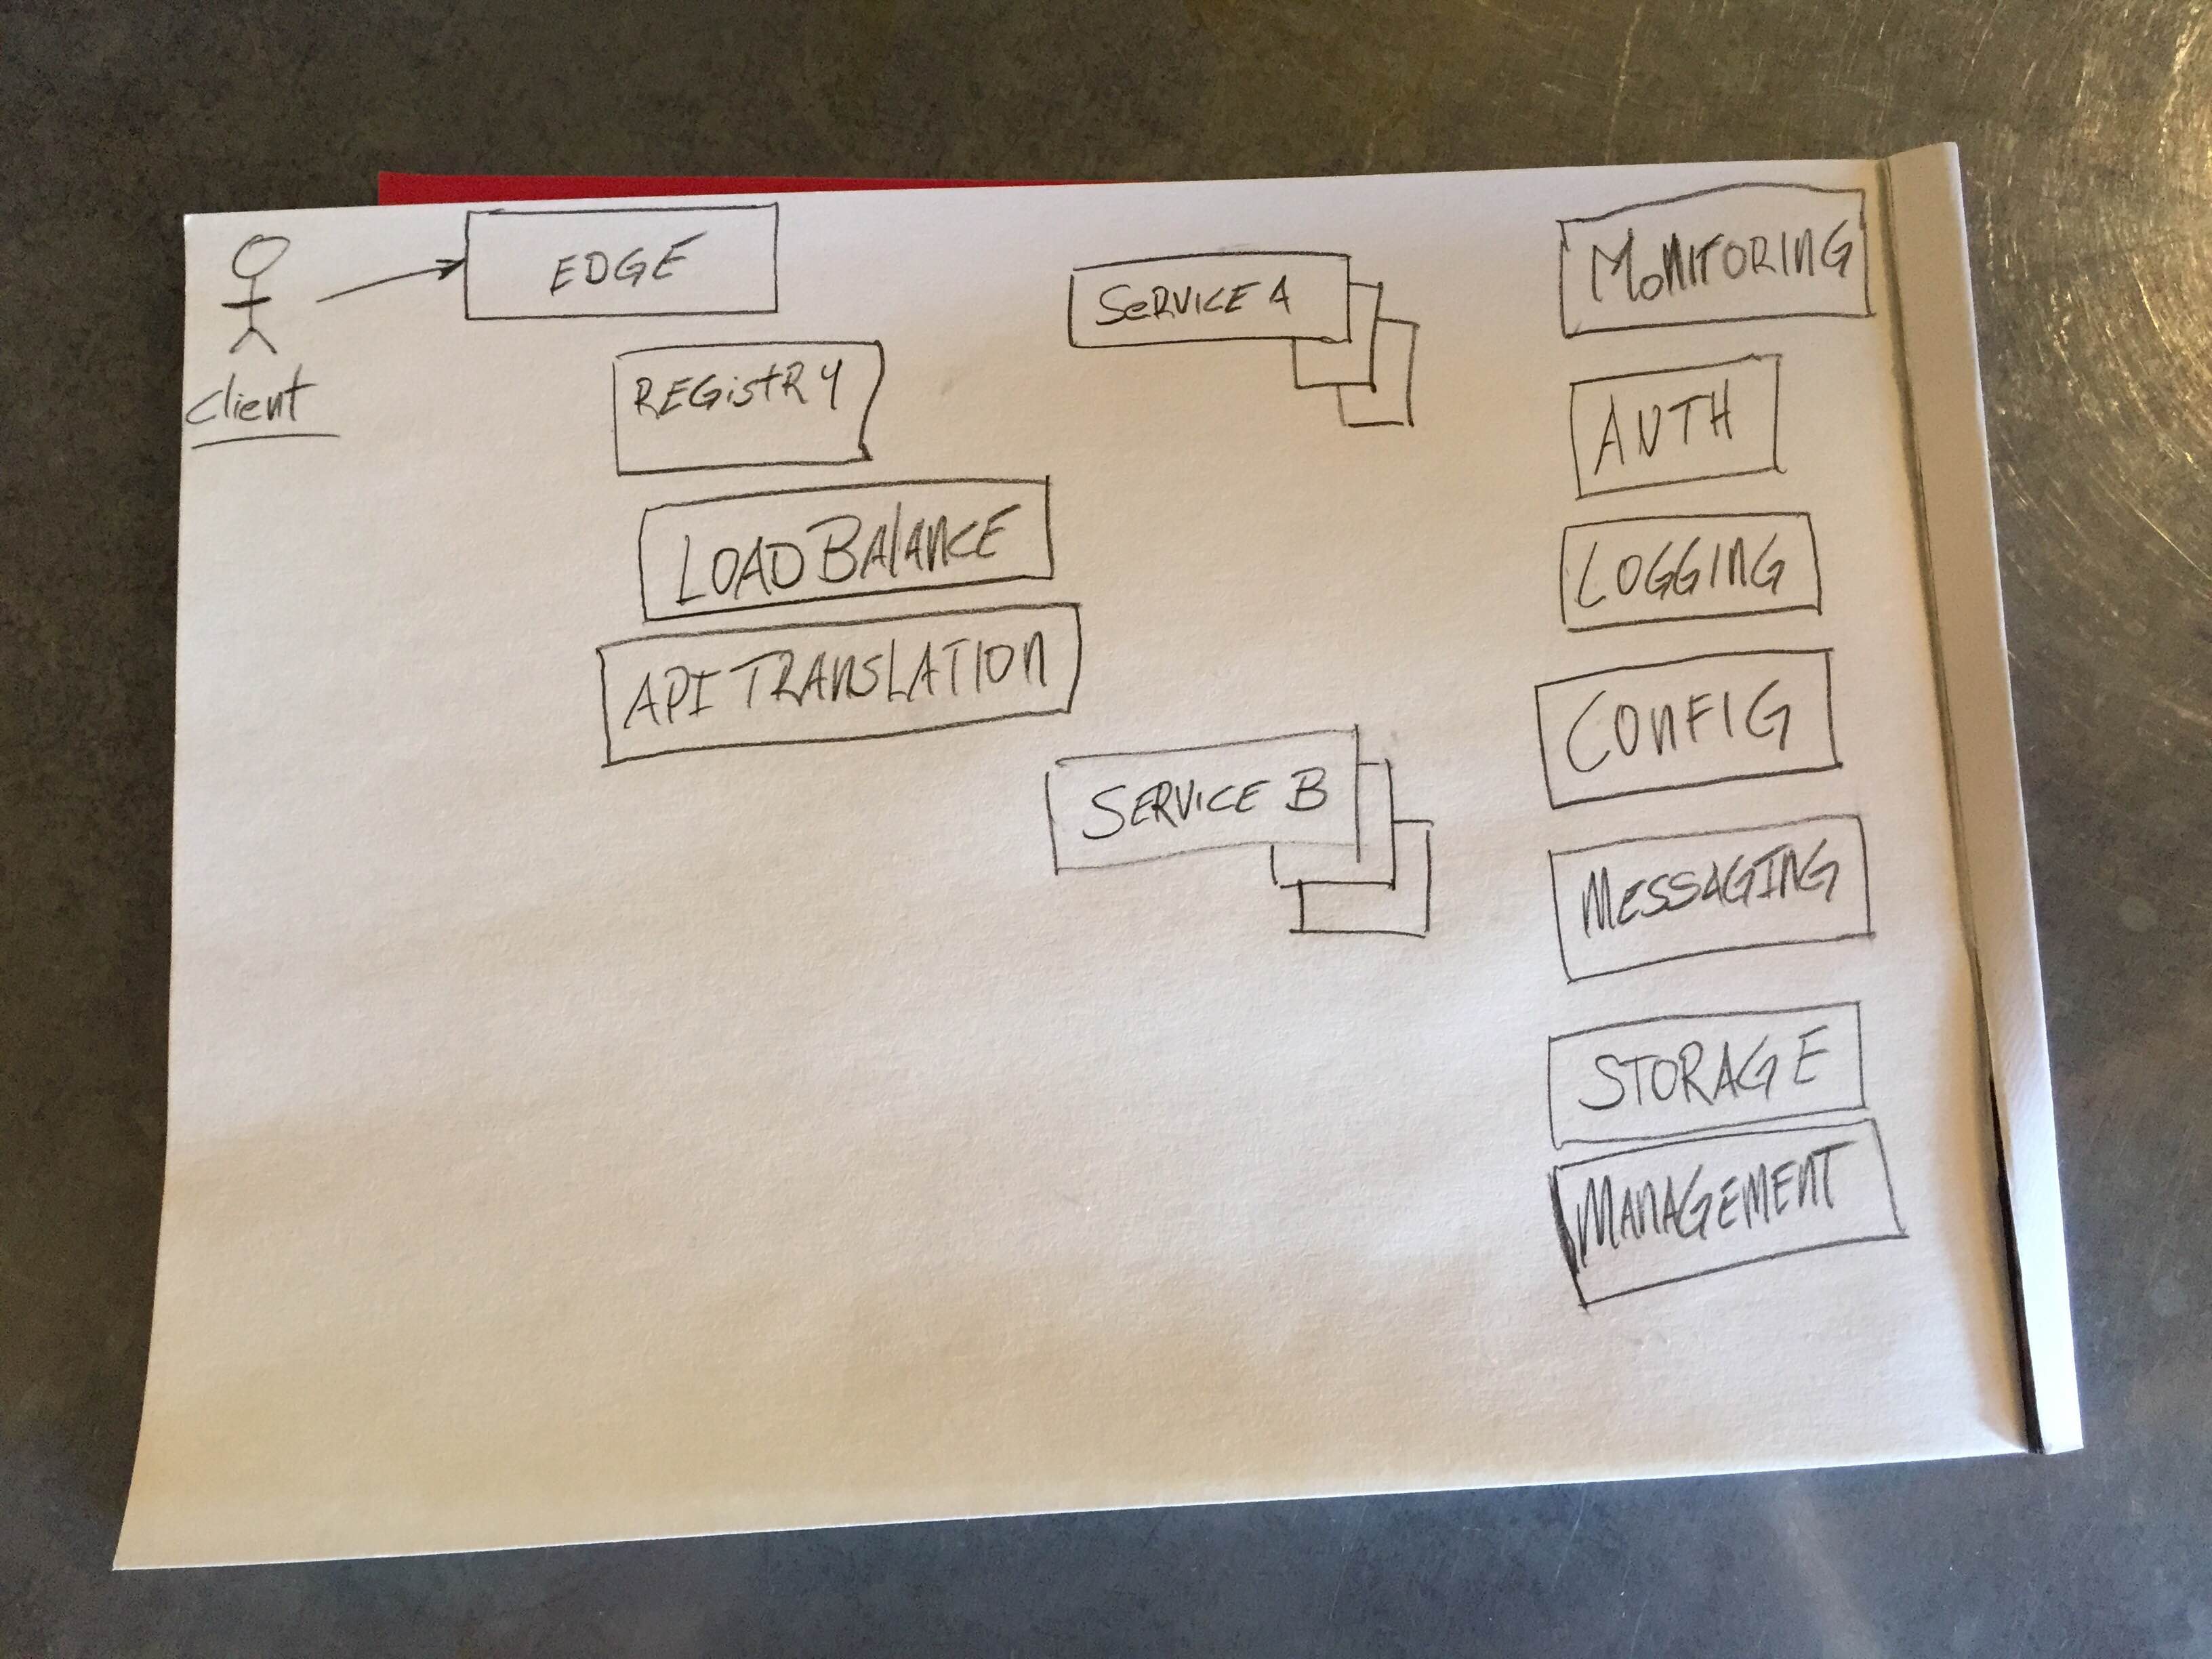 client
EDGE
REGistRY
LOAD BAlANCE
API TRANSLATION
SeRVICE A
SERVICE B
MoNITORING
AUTH
LOGGING
CONFIG
MESSAGING
STORAGE
MANAGEMENT